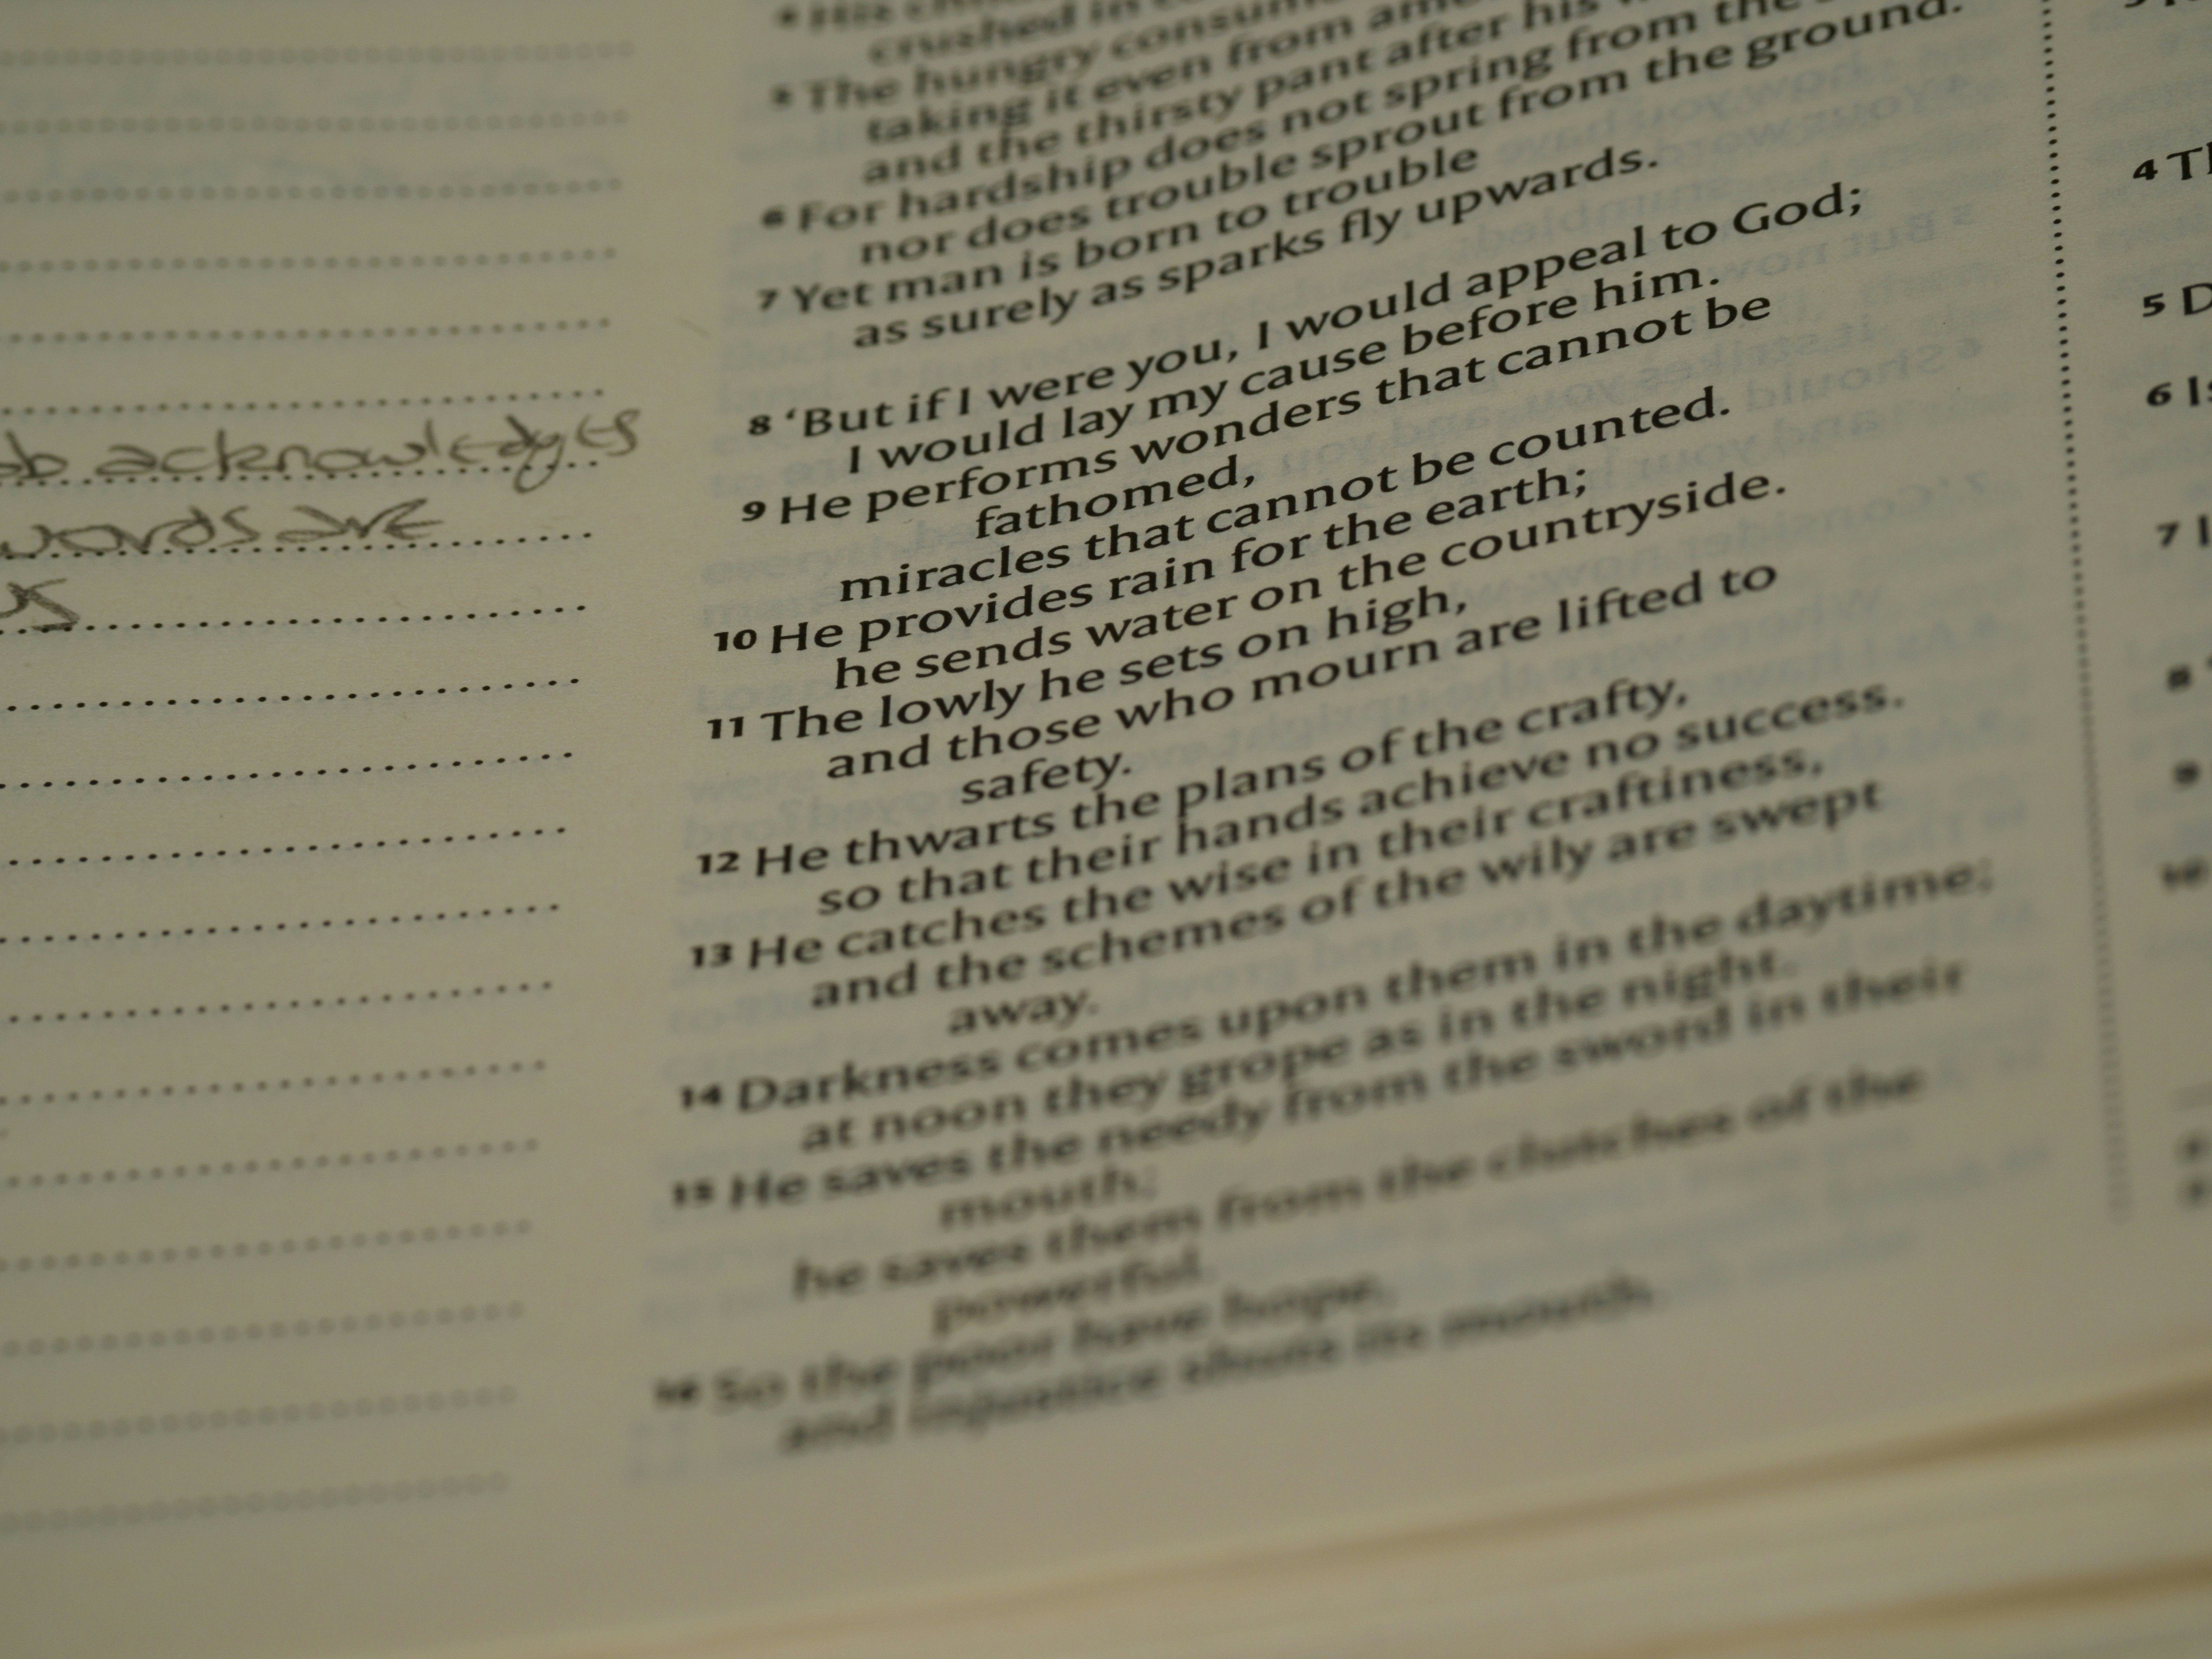 acknowledges
words are
crushed in
The hungry consume
taking it even from
and the thirsty pant after his
6 For hardship does not spring from the
nor does trouble sprout from the ground.
7 Yet man is born to trouble
as surely as sparks fly upwards.
8 ‘But if I were you, I would appeal to God;
I would lay my cause before him.
9 He performs wonders that cannot be
fathomed,
miracles that cannot be counted.
10 He provides rain for the earth;
he sends water on the countryside.
11 The lowly he sets on high,
and those who mourn are lifted to
safety.
12 He thwarts the plans of the crafty,
so that their hands achieve no success.
13 He catches the wise in their craftiness,
and the schemes of the wily are swept
away.
14 Darkness comes upon them in the daytime;
at noon they grope as in the night.
15 He saves the needy from the sword in their
mouth;
he saves them from the clutches of the
powerful.
16 So the poor have hope,
and injustice shuts its mouth.
4
5
6
7
8
9
10